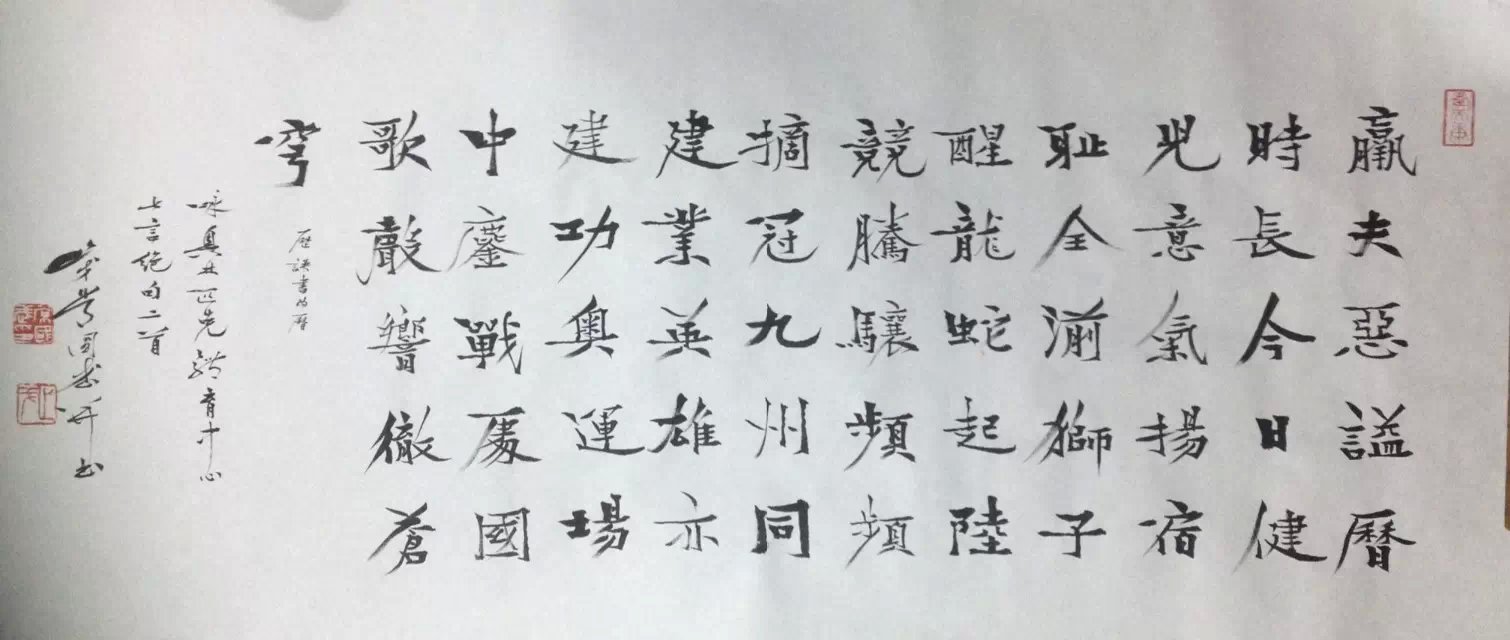 羸夫惡謚曆
時長今日健
兒意氣揚宿
恥全湔獅子
醒龍蛇起陸
競騰驤頻頻
摘冠九州同
建業英雄亦
建功奧運場
中鏖戰處國
歌聲響徹蒼
穹
歷誤書为曆
咏奥林匹克體育中心
七言絶句二首